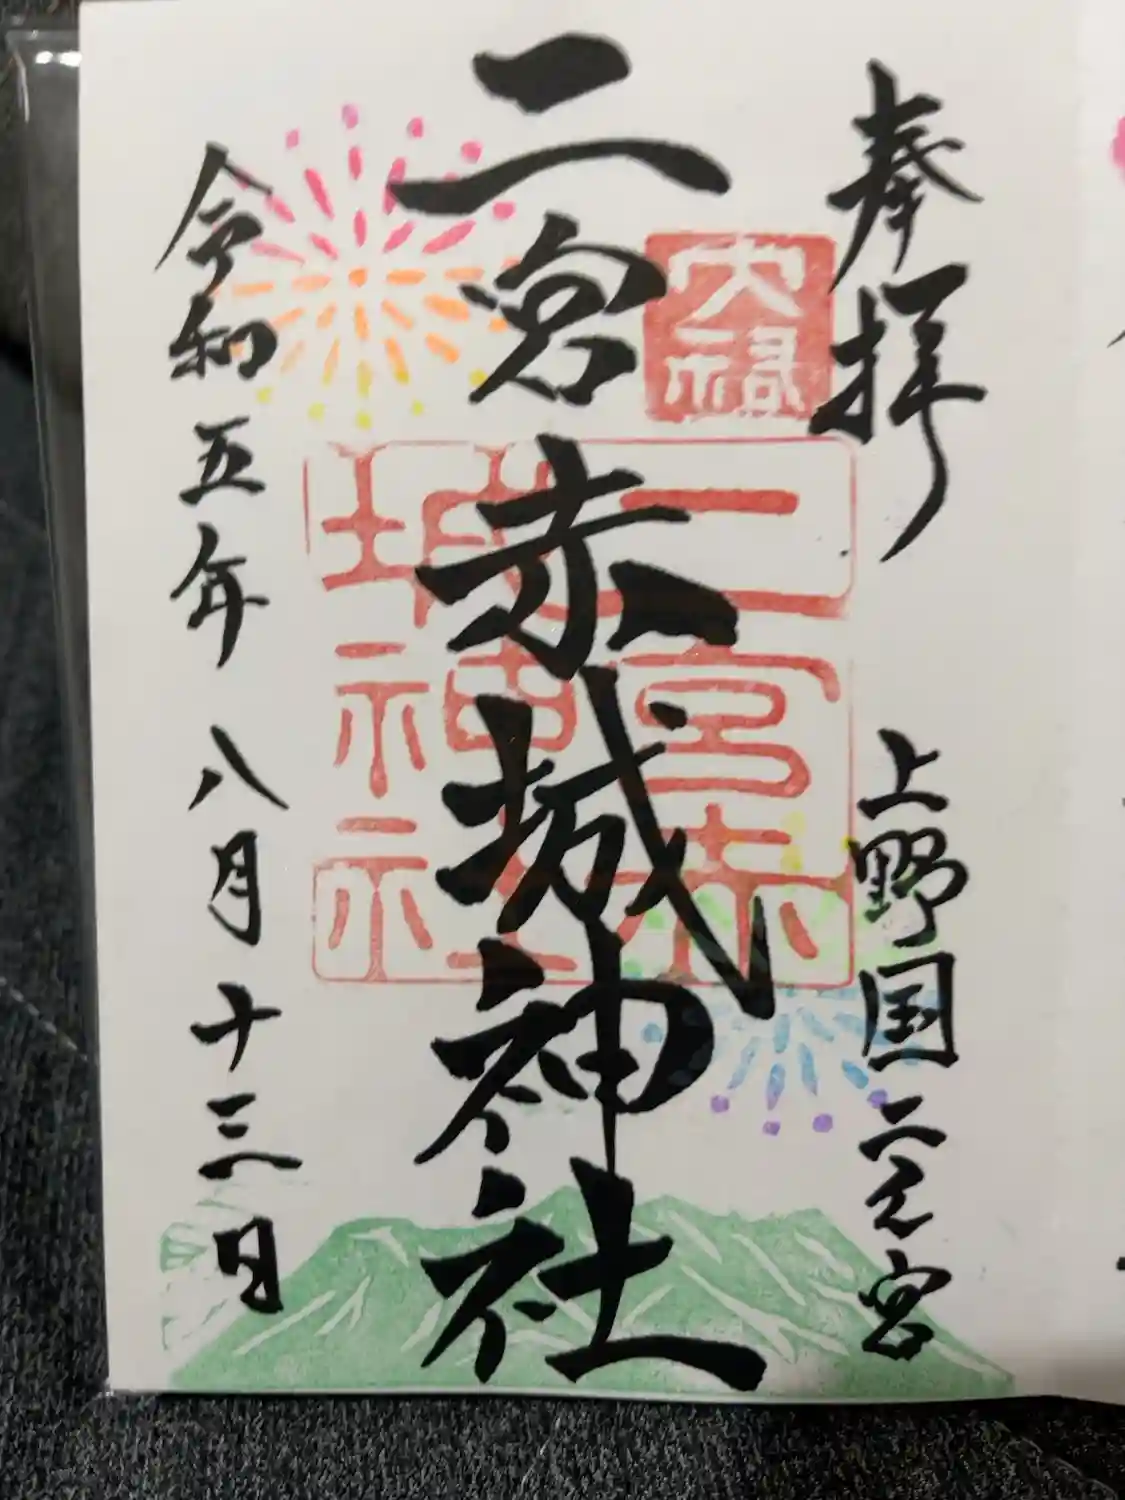 奉拝
上野国二之宮
二宮赤城神社
二宮赤
城神社
令和五年八月十三日